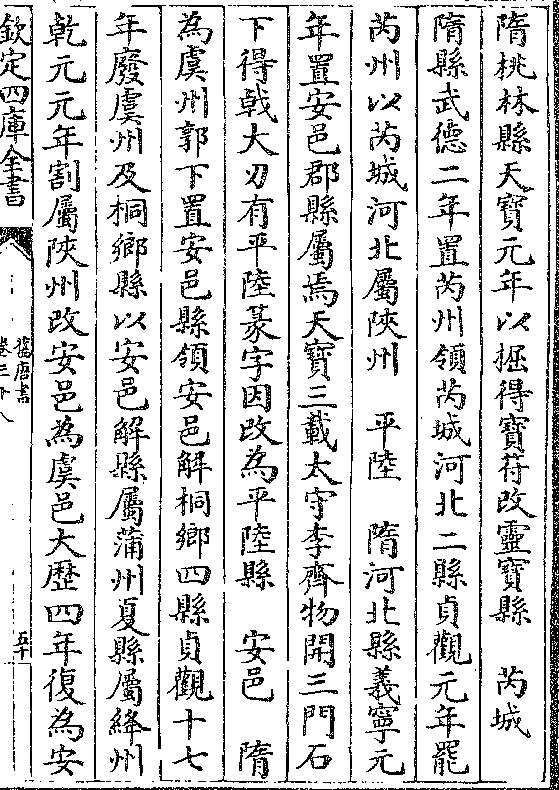 隋桃林縣天寶元年以掘得寶符改靈寶縣　芮城
隋縣武德二年置芮州領芮城河北二縣貞觀元年罷
芮州以芮城河北屬陜州　平陸　隋河北縣義寧元
年置安邑郡縣屬焉天寶三載太守李齊物開三門石
下得戟大刃有平陸篆字因改為平陸縣　安邑　隋
為虞州郭下置安邑縣領安邑解桐鄉四縣貞觀十七
年廢虞州及桐鄉縣以安邑解縣屬蒲州夏縣屬絳州
乾元元年割屬陜州改安邑為虞邑大歷四年復為安
欽定四庫全書
舊唐書
卷三十八
五十